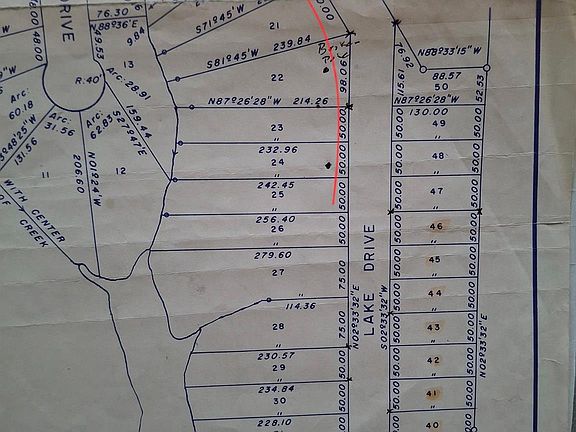 76.30
N88°36'E
48.00
DRIVE
49.53
984
13
R:40'
Arc: 28.91
Arc: 60.18
Arc: 31.56
Arc: 62.83
S27°47'E
159.44
131.56
11
206.60
N01°24'W
12
WITH CENTER
OF CREEK
S71°45'W
21
S81°45'W 239.84
22
98.06
N87°26'28"W 214.26
23
50.00
232.96
24
"
50.00
242.45
25
"
50.00
256.40
26
"
50.00
279.60
27
75.00
"
114.36
28
75.00
"
230.57
29
50.00
"
234.84
30
50.00
"
228.10
N02°33'32"E
LAKE DRIVE
S02°33'32"W
76.92
N88°33'15"W
88.57
115.61
50
52.53
N87°26'28"W
130.00
50.00 49 50.00
"
50.00 48 50.00
"
50.00 47 50.00
"
50.00 46 50.00
"
50.00 45 50.00
"
50.00 44 50.00
"
50.00 43 50.00
"
50.00 42 50.00
"
50.00 41 50.00
"
40
N02°33'32"E